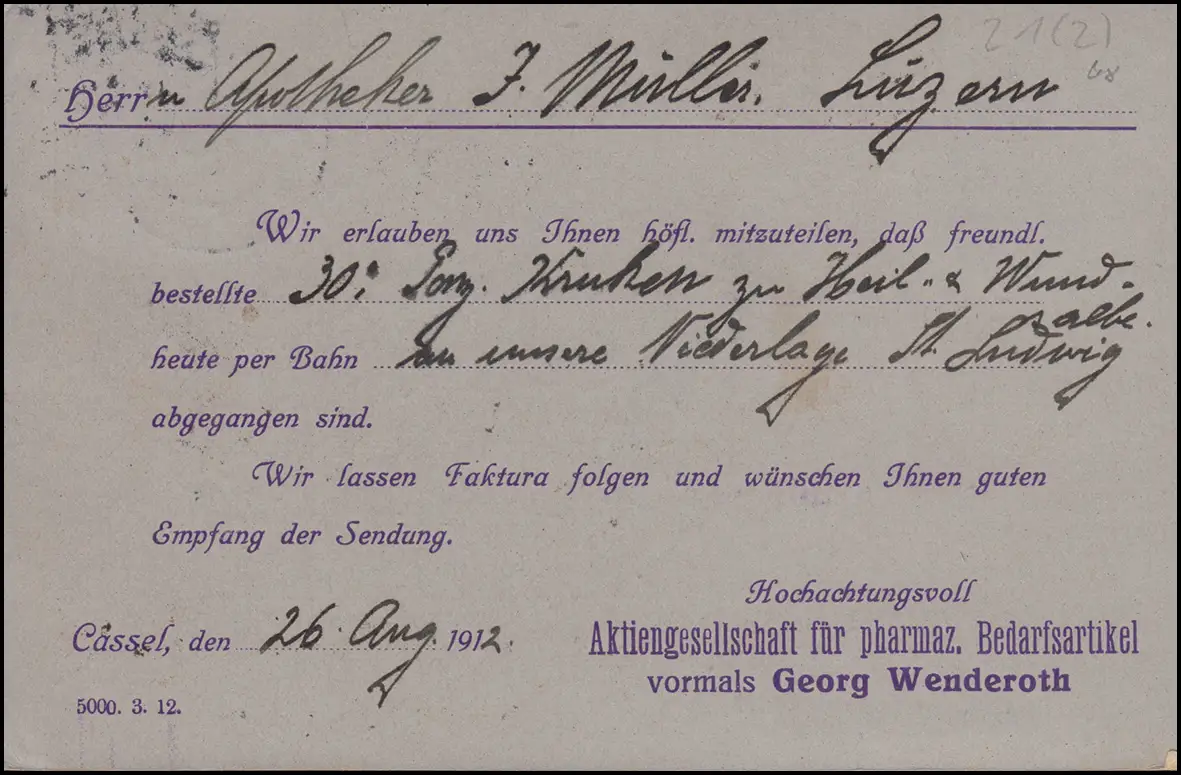 21(2)
Herrn Apotheker J. Müller. Luzern
Wir erlauben uns Ihnen höfl. mitzuteilen, daß freundl.
bestellte 30: Porz. Kruken zu Heil- & Wund-
salbe.
heute per Bahn an unsere Niederlage St. Ludwig
abgegangen sind.
Wir lassen Faktura folgen und wünschen Ihnen guten
Empfang der Sendung.
Hochachtungsvoll
Cassel, den 26. Aug. 1912.
Aktiengesellschaft für pharmaz. Bedarfsartikel
vormals Georg Wenderoth
5000. 3. 12.